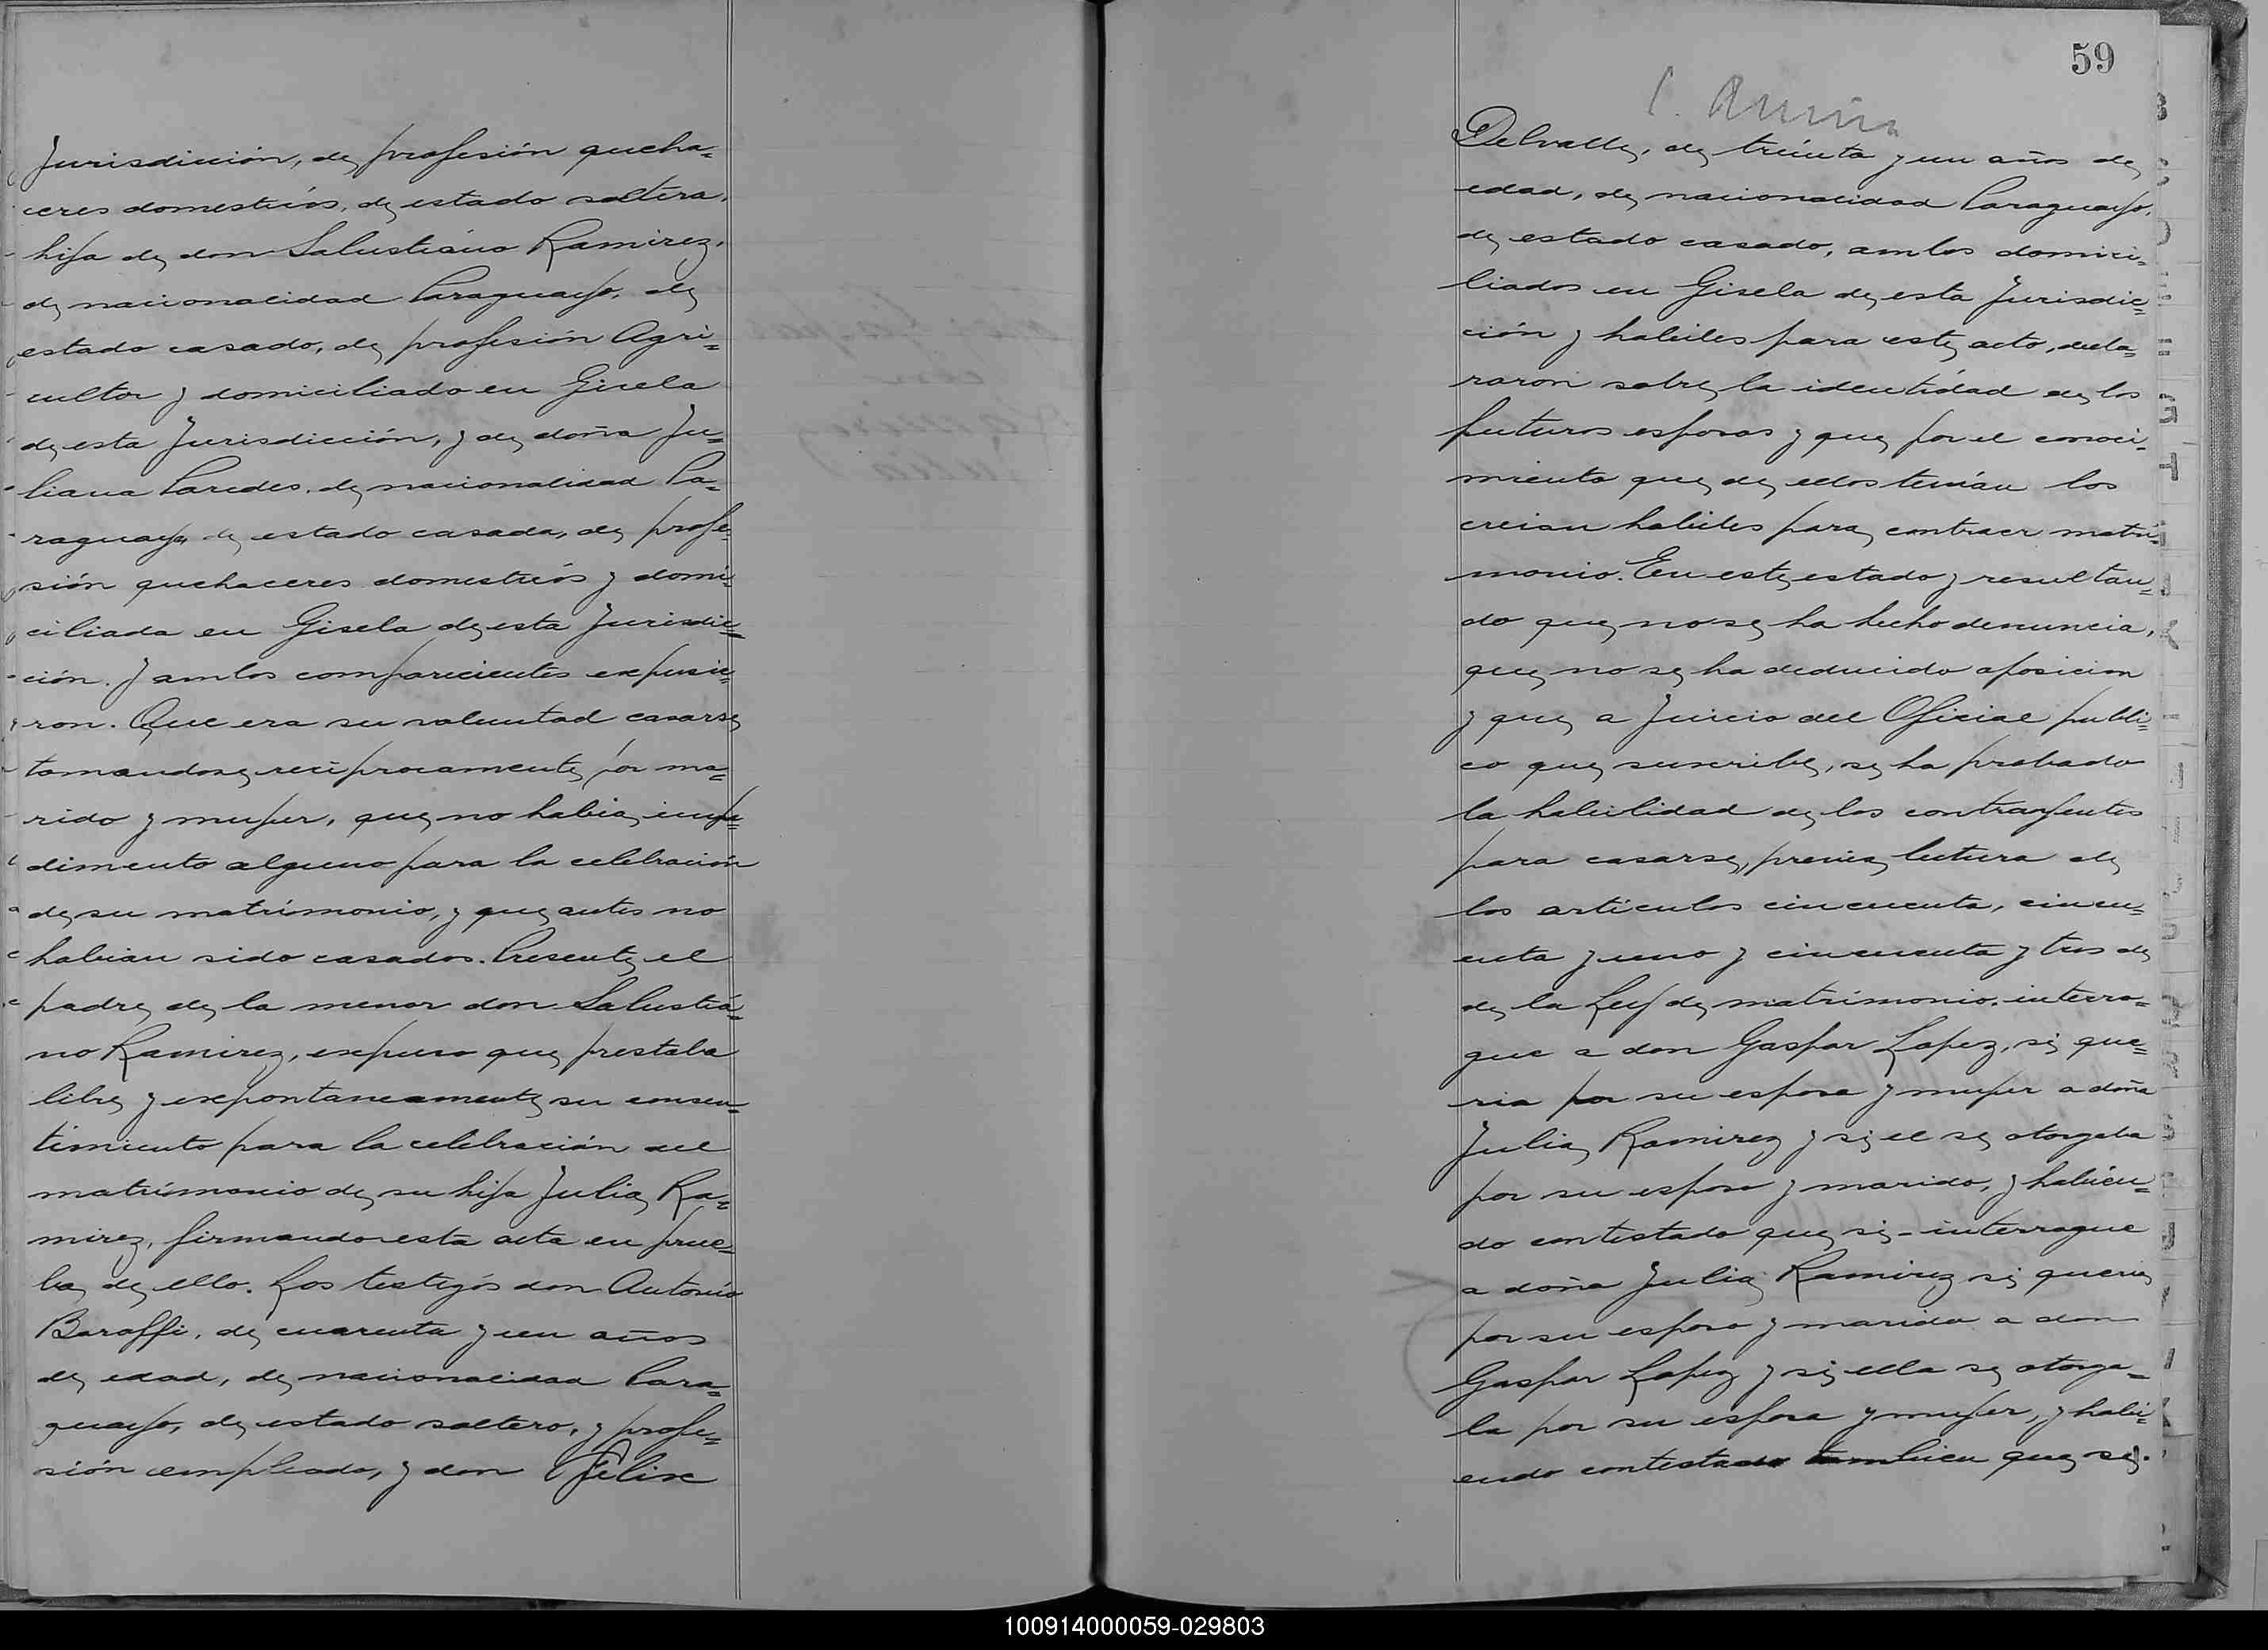 Jurisdicción, de profesión queha=
ceres domesticós, de estado soltera,
hija de don Salustiáno Ramirez,
de nacionalidad Paraguayo, de
estado casado, de profesión Agri=
cultor y domiciliado en Gisela
de esta Jurisdicción, y de doña Ju=
liana Paredes, de nacionalidad Pa=
raguaya de estado casada, de profe=
sión quehaceres domesticós y domi=
ciliada en Gisela de esta Jurisdic=
ción. Y ambos comparecientes expusie=
ron. Que era su voluntad casarse
tomandose reciprocamente por ma=
rido y mujer, que no habia impe=
dimento alguno para la celebración
de su matrimonio, y que antes no
habian sido casados. Presente el
padre de la menor don Salustiá=
no Ramirez, expuso que prestaba
libre y expontaneamente su consen=
timiento para la celebración del
matrimonio de su hija Julia Ra=
mirez, firmando esta acta en prue=
ba de ello. Los testigós don Antonio
Baroffi, de cuarenta y un años
de edad, de nacionalidad Para=
guayo, de estado soltero, y profe=
sión empleado, y don Felix
59
Delvalle, de treinta y un años de
edad, de nacionalidad Paraguayo,
de estado casado, ambos domici=
liados en Gisela de esta Jurisdic=
ción y habiles para este acto, decla=
raron sobre la identidad de los
futuros esposos y que por el conoci=
miento que de ellos tenián los
creian habiles para contraer matri=
monio. En este estado y resultan=
do que no se ha hecho denuncia,
que no se ha deducido oposicion
y que a Juicio del Oficial publi=
co que suscribe, se ha probado
la habilidad de los contrayentes
para casarse, previa lectura de
los articulos cincuenta, cincu=
enta y uno y cincuenta y tres de
de la Ley de matrimonio, interro=
gue a don Gaspar Lopez, si que=
ria por su esposa y mujer a doña
Julia Ramirez y si el se otorgaba
por su esposo y marido, y habien=
do contestado que si - interrogue
a doña Julia Ramirez si queria
por su esposo y marido a don
Gaspar Lopez y si ella se otorga=
ba por su esposa y mujer, y habi=
endo contestado tambien que si.
100914000059-029803